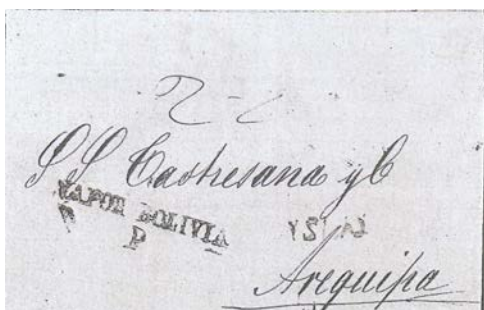 2-2
S S Castresana y C
VAPOR BOLIVIA
P P
Arequipa